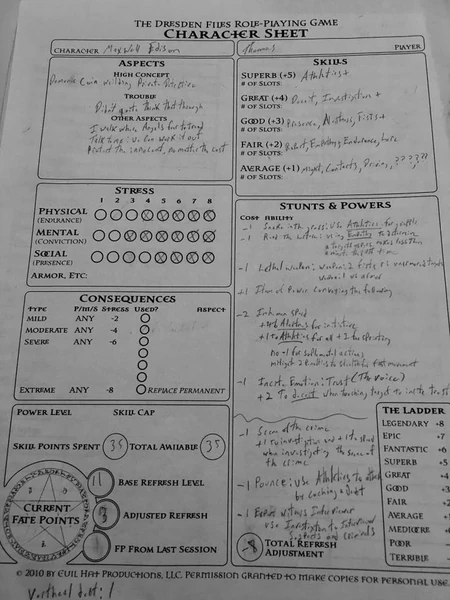 The Dresden Files Role-Playing Game
Character Sheet
Character Maxwell Edison
Thomas Player
Aspects
High Concept
Coin Wielding Private Detective
Trouble
Didn't quite think that through
Other Aspects
I walk where Angels fear to tread
Talk time: we can work it out
Protect the innocent, no matter the cost
Skills
Superb (+5) Athletics +
# of Slots:
Great (+4) Deceit, Investigation +
# of Slots:
Good (+3) Presence, Alertness, Fists +
# of Slots:
Fair (+2) Empathy, Endurance, Lore
# of Slots:
Average (+1) Might, Contacts, Driving, ?????
# of Slots:
Stress
1 2 3 4 5 6 7 8
Physical
(Endurance)
Mental
(Conviction)
Social
(Presence)
Armor, Etc:
Consequences
Type P/M/S Stress Used? Aspect
Mild Any -2
Moderate Any -4
Severe Any -6
Extreme Any -8 Replace Permanent
Stunts & Powers
Cost Ability
-1 Snake in the grass: Use Athletics for
-1 Read the
-1 Lethal weapon: weapon: 2 fists vs unarmored targets
+1 Item of Power conveying the following
-2 Inhuman speed
+4 to Alertness for initiative
+1 to Athletics for all +2 for sprinting
No -1 for supplemental actions
-1 Incite Emotion: Trust (The Voice)
+2 To deceit when touching target to incite Trust
-1 Scene of the crime
+1 to investigation and
when investigating the scene of
the crime
-1 Pounce: use Athletics to attack
-1 Witness Interviewer
Use Investigation to Interview
suspects and criminals
-8 Total Refresh
Adjustment
Power Level Skill Cap
Skill Points Spent 35 Total Available 35
Current
Fate Points
11 Base Refresh Level
3 Adjusted Refresh
FP From Last Session
The Ladder
Legendary +8
Epic +7
Fantastic +6
Superb +5
Great +4
Good +3
Fair +2
Average +1
Mediocre +0
Poor -1
Terrible
© 2010 by Evil Hat Productions, LLC. Permission granted to make copies for personal use.
debt: 1